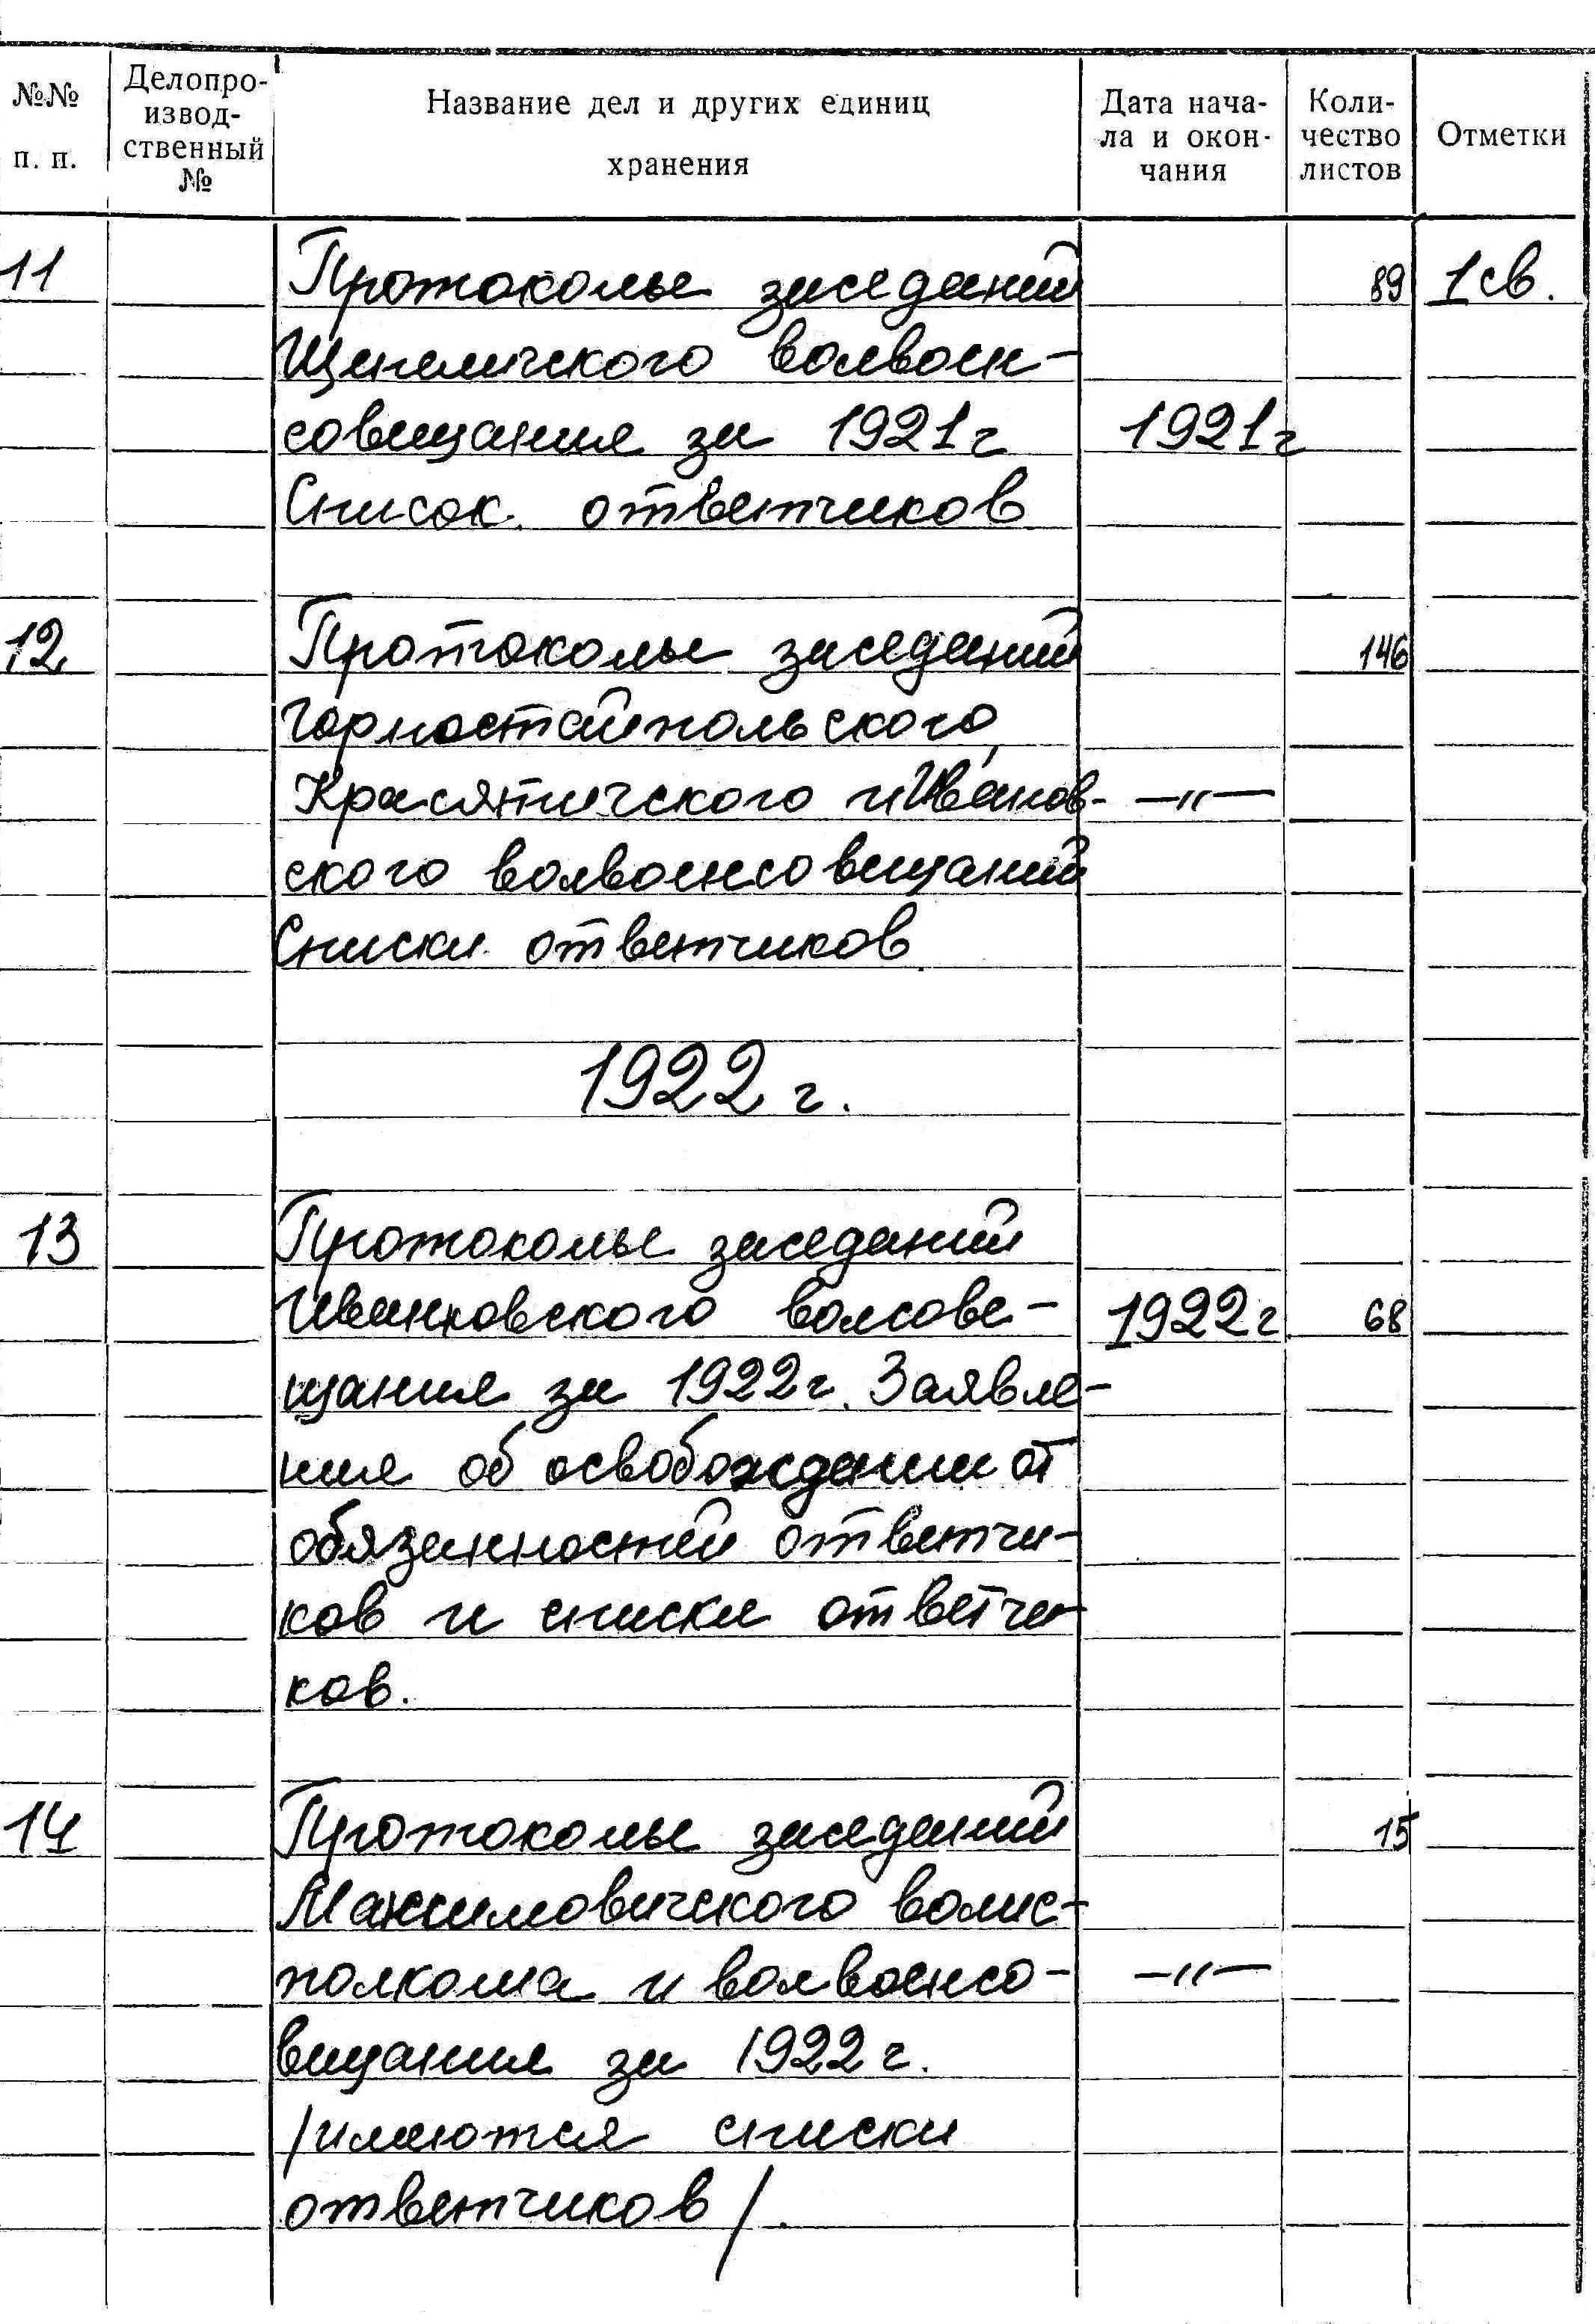 №№ п. п.
Делопро-
извод-
ственный
№
Название дел и других единиц
хранения
Дата нача-
ла и окон-
чания
Коли-
чество
листов
Отметки
11 Протоколы заседаний 89 1 св.
Щепеличского волвоен-
совещания за 1921г 1921г
Список ответчиков
12 Протоколы заседаний 146
Горностайпольского,
Красятичского и Иванов- —"—
ского волвоенсовещаний
Списки ответчиков
1922 г.
13 Протоколы заседаний
Иванковского волсове- 1922г 68
щания за 1922г. Заявле-
ния об освобождении от
обязанностей ответчи-
ков и списки ответчи-
ков.
14 Протоколы заседаний 15
Максимовичского волис-
полкома и волвоенсо- —"—
вещания за 1922 г.
/имеются списки
ответчиков/.